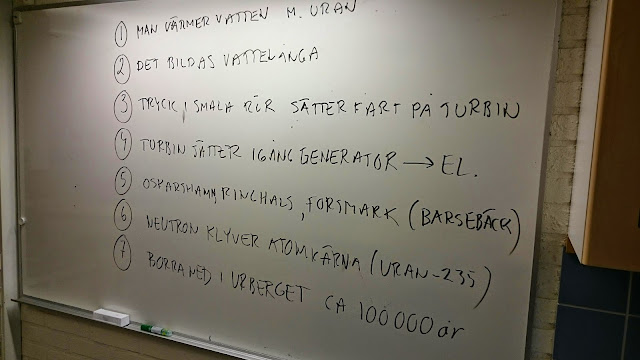 ① MAN VÄRMER VATTEN M. URAN
② DET BILDAS VATTELÅNGA
③ TRYCK I SMALA RÖR SÄTTER FART PÅ TURBIN
④ TURBIN SÄTTER IGÅNG GENERATOR → EL.
⑤ OSKARSHAMN, RINGHALS, FORSMARK (BARSEBÄCK)
⑥ NEUTRON KLYVER ATOMKÄRNA (URAN-235)
⑦ BORRA NED I URBERGET CA 100 000 år